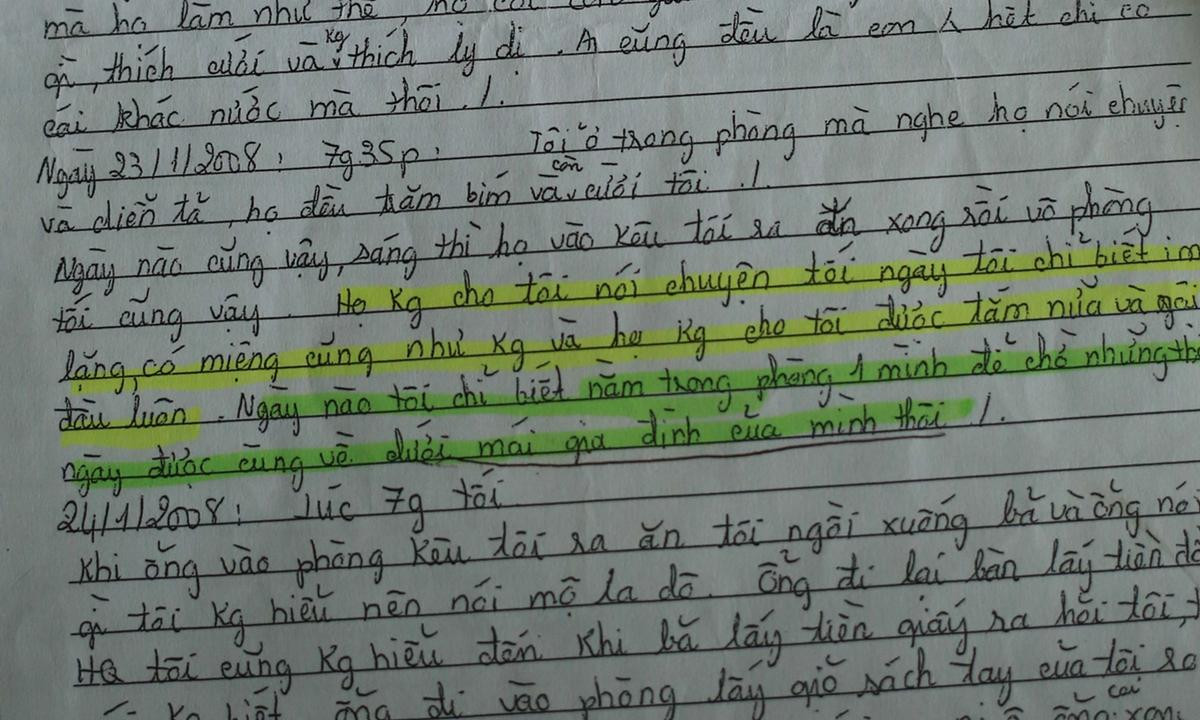 mà họ làm như thế, họ
gì, thích cưới và kg thích ly dị. Ai cũng đều là con λ hết chỉ có
cái khác nước mà thôi ./.
Ngày 23/1/2008: 7g35p: Tôi ở trong phòng mà nghe họ nói chuyện
và diễn tả, họ đều trăm bím và còn cười tôi ./.
Ngày nào cũng vậy, sáng thì họ vào kêu tôi ra ăn xong rồi vô phòng
tối cũng vậy. Họ kg cho tôi nói chuyện tối ngày tôi chỉ biết im
lặng, có miệng cũng như kg và họ kg cho tôi được tắm nửa và gội
đầu luôn. Ngày nào tôi chỉ biết nằm trong phòng 1 mình để chờ những
ngày được cùng về dưới mái gia đình của mình thôi /.
24/1/2008: lúc 7g tối
Khi ổng vào phòng kêu tôi ra ăn tôi ngồi xuống bả và ổng nói
gì tôi kg hiểu nên nói mộ la dô. Ổng đi lại bàn lấy tiền
HQ tôi cũng kg hiểu đến khi bả lấy tiền giấy ra hỏi tôi,
kg biết ổng đi vào phòng lấy giỏ sách tay của tôi ra